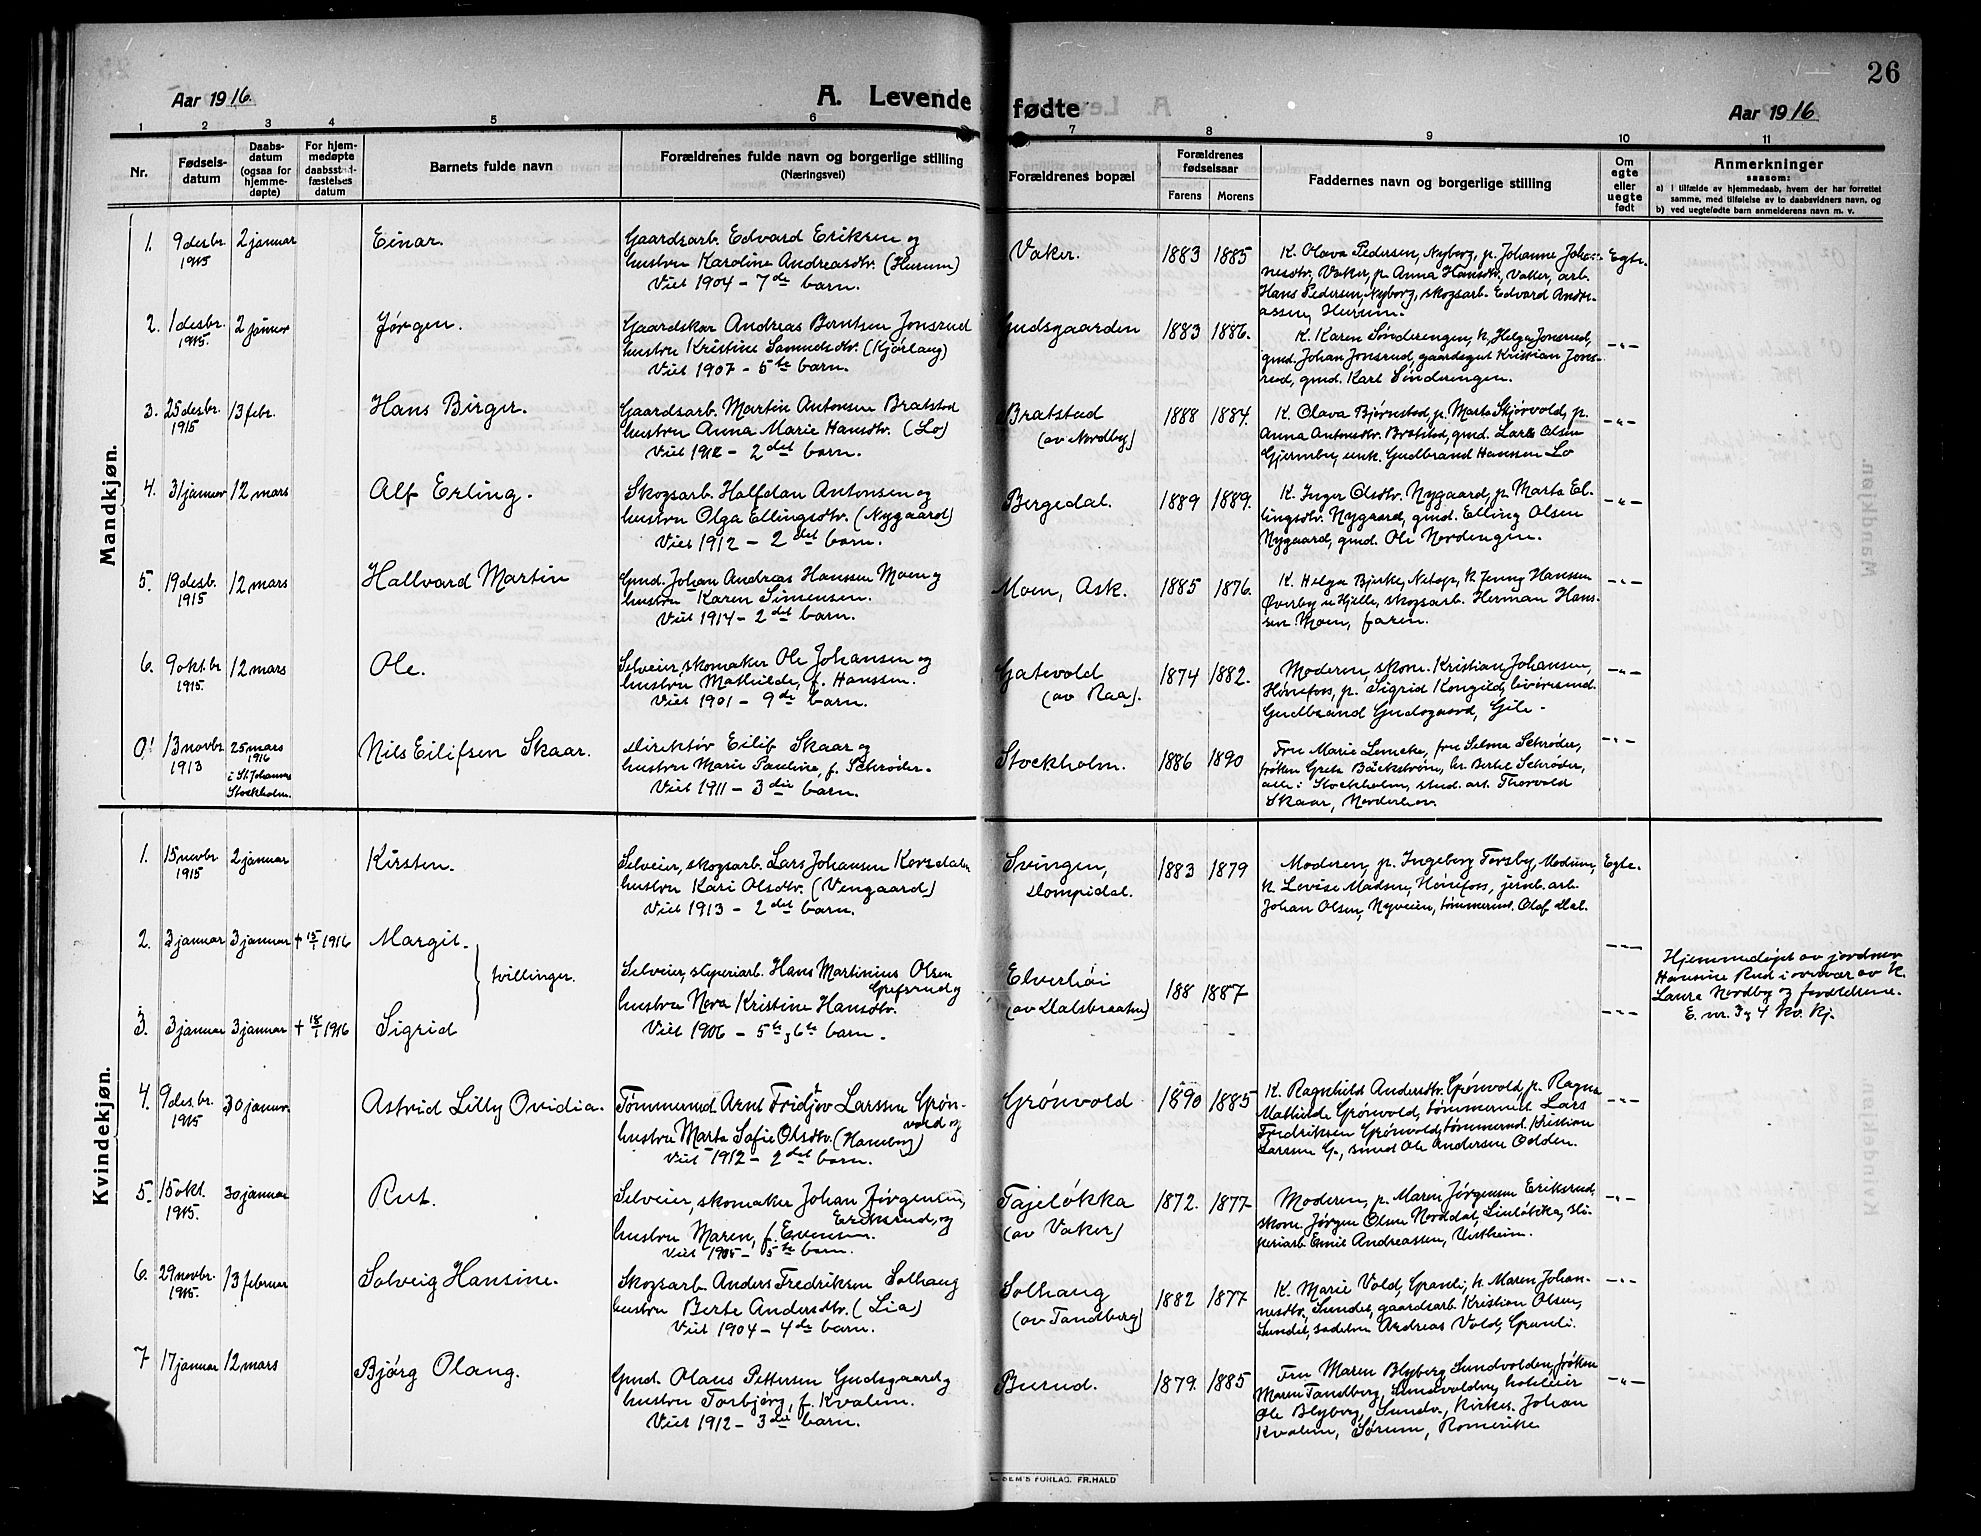 26
Aar 1916.
A. Levende fødte
Aar 1916
1 2 3 4 5 6 7 8 9 10 11
Nr.
Fødsels-
datum
Daabs-
datum
(ogsaa for
hjemme-
døpte)
For hjem-
medøpte
daabsstad-
fæstelses
datum
Barnets fulde navn
Forældrenes fulde navn og borgerlige stilling
(Næringsvei)
Forældrenes bopæl
Forældrenes
fødselsaar
Farens Morens
Faddernes navn og borgerlige stilling
Om
egte
eller
uegte
født
Anmerkninger
saasom:
a) i tilfælde av hjemmedaab, hvem der har forrettet
samme, med tilføielse av to daabsvidners navn, og
b) ved uegtefødte barn anmelderens navn m. v.
Mandkjøn.
1. 9 desbr. 1915 2 januar
Einar.
Gaardsarb. Edvard Eriksen og
hustru Karoline Andreasdtr. (Hurum)
Viet 1904 - 7de barn.
Vaker. 1883 1885
K. Olava Pedersen, Nyborg, p. Johanne Joha-
nesdtr, Vaker, p. Anna Hansdtr, Vaker, arb.
Hans Pedersen, Nyborg, skogsarb. Edvard Andre-
assen, Hurum.
Egte.
2. 1 desbr. 1915. 2 januar
Jørgen.
Gaardskar Andreas Berntsen Jonsrud
hustru Kristine Samuelsdtr. (Kjørlaug)
Viet 1907 - 5te barn.
Gudsgaarden 1883 1886.
K. Karen Sønderengen, k. Helga Jonsrud,
gmd. Johan Jonsrud, gaardsgut Kristian Jons-
rud, gmd. Karl Sønderengen.
-"-
3. 25 desbr. 1915 13 febr.
Hans Birger.
Gaardsarb. Martin Antonsen Bratstad
hustru Anna Marie Hansdtr. (Lo)
Viet 1912 - 2det barn.
Bratstad
(av Nordby)
1888 1884.
K. Olava Bjørnstad, p. Marta Skjørvold, p.
Anna Antonsdtr. Bratstad, gmd. Lars Olsen
Gjermby, unk. Gudbrand Hansen Lo
-"-
4. 31 januar 12 mars
Alf Erling.
Skogsarb. Halfdan Antonsen og
hustru Olga Ellingsdtr. (Nygaard)
Viet 1912 - 2det barn.
Bergedal. 1889 1889.
K. Inger Olsdtr. Nygaard, p. Marta El-
lingsdtr. Nygaard, gmd. Elling Olsen
Nygaard, gmd. Ole Nordengen.
-"-
5. 19 desb. 1915 12 mars
Hallvard Martin
Gmd. Johan Andreas Hansen Moen og
hustru Karen Simensen.
Viet 1914 - 2det barn.
Moen, Ask. 1885 1876.
K. Helga Bjerke, k. Jenny Hansen
Øverby u Hjelle, skogsarb. Herman Han-
sen Moen, faren.
-"-
6. 9 oktbr 1915. 12 mars
Ole.
Selveier, skomaker Ole Johansen og
hustru Mathilde, f. Hanssen.
Viet 1901 - 9de barn.
Gatevold
(av Raa).
1874 1882.
Moderen, skom. Kristian Johansen,
Hønefoss, p. Sigrid Kongild,
Gudbrand Gudsgaard, Gile.
-"-
0! 13 novbr 1913
25 mars
1916
i St. Johannes
Stockholm.
Nils Eilifsen Skaar.
Direktør Eilif Skaar og
hustru Marie Pauline, f. Schrøder.
Viet 1911 - 3die barn.
Stockholm. 1886 1890
Fru Marie Lemcke, fru Selma Schrøder,
frøken Greta Bäckstrøm, hr. Bertel Schrøder,
alle i Stockholm, stud. art. Thorvald
Skaar, Norderhov.
-"-
Kvindekjøn.
1. 15 novbr 1915 2 januar
Kirsten.
Selveier, skogsarb. Lars Johansen Korsdalen
hustru Kari Olsdtr. (Vengaard)
Viet 1913 - 2det barn.
Svingen,
Dompidal.
1883 1879
Moderen, p. Ingeborg Forsby, Modum,
k. Lovise Madsen, Hønefoss, jernb. arb.
Johan Olsen, Nyveien, tømmermd. Olaf Dal.
Egte.
2. 3 januar 3 januar + 15/1 1916
Margit.
tvillinger.
Selveier, sliperiarb. Hans Martinius Olsen
Grefsrud og
hustru Nora Kristine Hansdtr.
Viet 1906 - 5te, 6te barn.
Elverhøi
(av Dalsbraaten)
188 1887
-"-
Hjemmedøpt av jordmor
Hansine Rud i overvær av k.
Laura Nordby og forældrene.
E. nr. 3 og 4 Ko. kj.
3. 3 januar 3 januar + 18/1 1916
Sigrid
-"-
4. 9 des.br. 1915 30 januar
Astrid Lilly Ovidia.
Tømmermd Arnt Fridjov Larssen Grøn-
vold og
hustru Marta Sofie Olsdtr. (Honebog)
Viet 1912 - 2det barn.
Grønvold 1890 1885
K. Ragnhild Andersdtr. Grønvold, p. Ragna
Mathilde Grønvold, tømmermd. Lars
Fredriksen Grønvold, tømmermd. Kristian
Larssen G., smed Ole Andersen Odden.
-"-
5. 15 okt. 1915. 30 januar
Rut.
Selveier, skomaker Johan Jørgensen,
Eriksrud, og
hustru Maren, f. Evensen.
Viet 1905 - 5te barn.
Tajeløkka
(av Vaker)
1872. 1877
Moderen, p. Maren Jørgensen Eriksrud,
skom. Jørgen Olsen Norddal, Linløkka, sli-
periarb. Emil Andreassen, Vestheim.
-"-
6. 29 novbr. 1915. 13 februar
Solveig Hansine.
Skogsarb. Anders Fredriksen Solhaug
hustru Berte Andersdtr. (Lia)
Viet 1904 - 4de barn.
Solhaug
(av Tandberg)
1882 1877
K. Marie Vold, Granli, k. Maren Johan-
nesdtr, Sundet, gaardsarb. Kristian Olsen,
Sundet, sadelm Andreas Vold, Granli.
-"-
7 17 januar 12 mars
Bjørg Olaug.
Gmd. Olaus Pettersen Gudsgaard og
hustru Torbjørg, f. Kvalem.
Viet 1912 - 3die barn.
Burud. 1879. 1885
Fru Maren Blyberg Sundvolden, frøken
Maren Tandberg, Sundvolden, hoteleier
Ole Blyberg, Sundv., kirkes. Johan
Kvalem, Sørum, Romerike
-"-
SEM'S FORLAG. FR. HALD